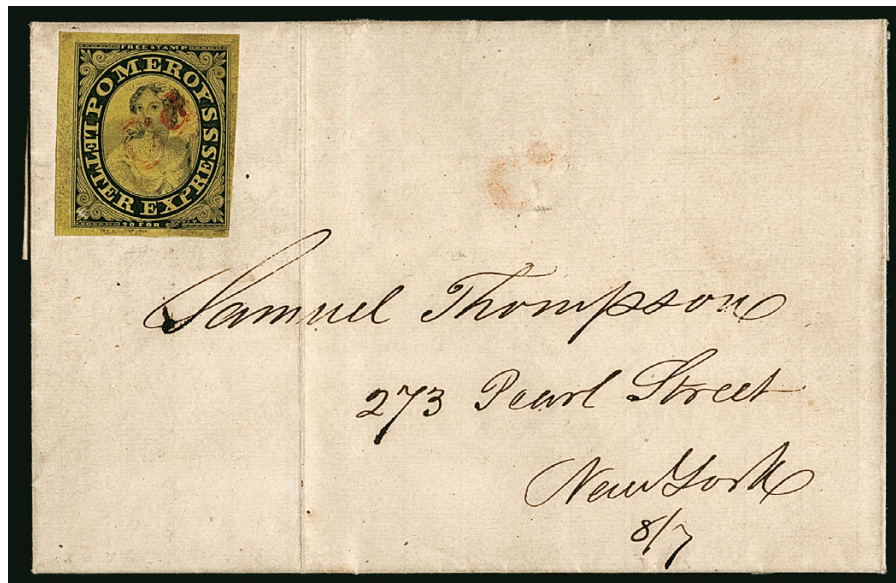 FREE STAMP
POMEROY'S
LETTER EXPRESS
20 FOR
Samuel Thompson
273 Pearl Street
New York
8/7